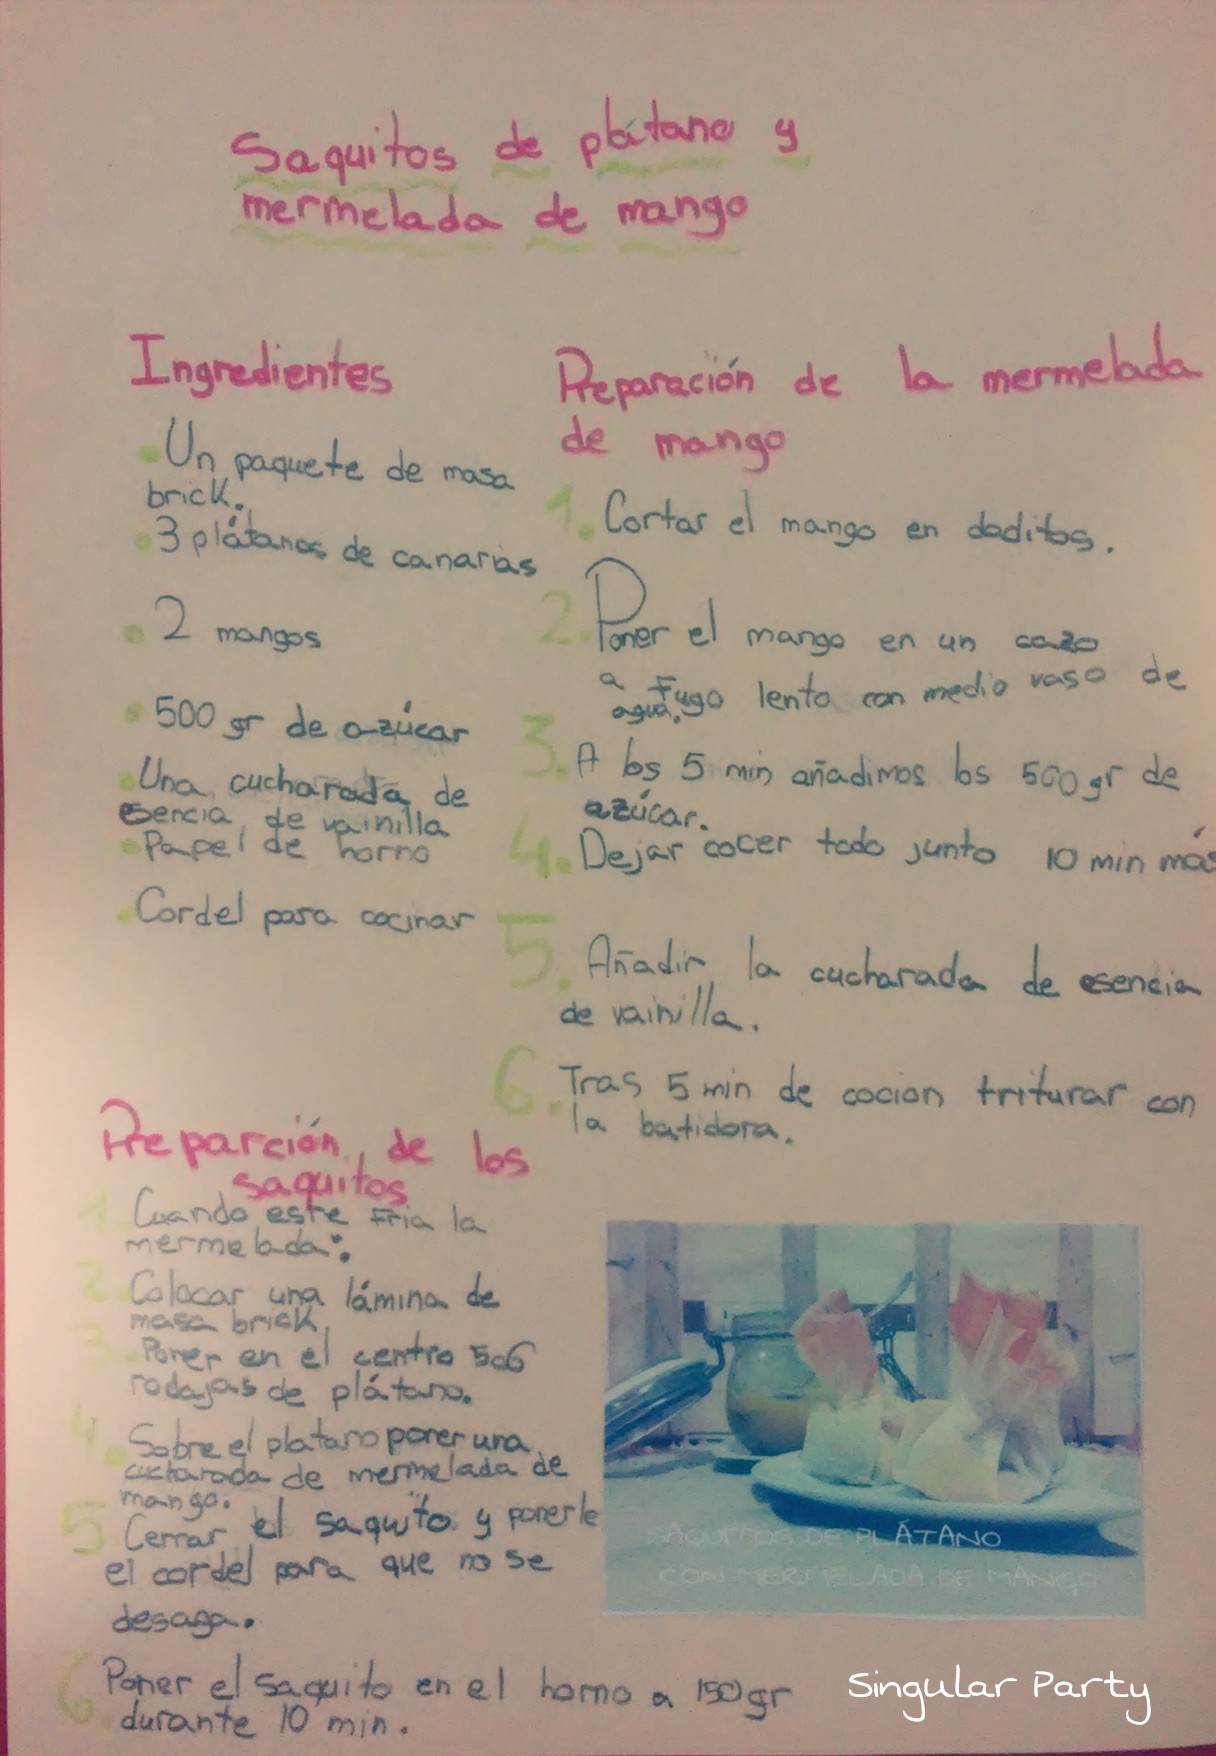 Saquitos de plátano y
mermelada de mango
Ingredientes
Un paquete de masa
brick.
3 plátanos de canarias
2 mangos
500 gr de azúcar
Una cucharada de
esencia de vainilla
Papel de horno
Cordel para cocinar
Preparación de la mermelada
de mango
1. Cortar el mango en daditos.
2. Poner el mango en un cazo
a Fugo lento con medio vaso de
agua.
3. A los 5 min añadimos los 500 gr de
azúcar.
4. Dejar cocer todo junto 10 min más
5. Añadir la cucharada de esencia
de vainilla.
6. Tras 5 min de cocion triturar con
la batidora.
Preparción de los
saquitos
1 Cuando este Fria la
mermelada:
2 Colocar una lámina de
masa brick
3 Poner en el centro 5o6
rodajas de plátano.
4. Sobre el platano poner una
cucharada de mermelada de
mango.
5 Cerrar el saquito y ponerle
el cordel para que no se
desaga.
6 Poner el saquito en el horno a 150gr
durante 10 min.
SAQUITOS DE PLÁTANO
CON MERMELADA DE MANGO
Singular Party